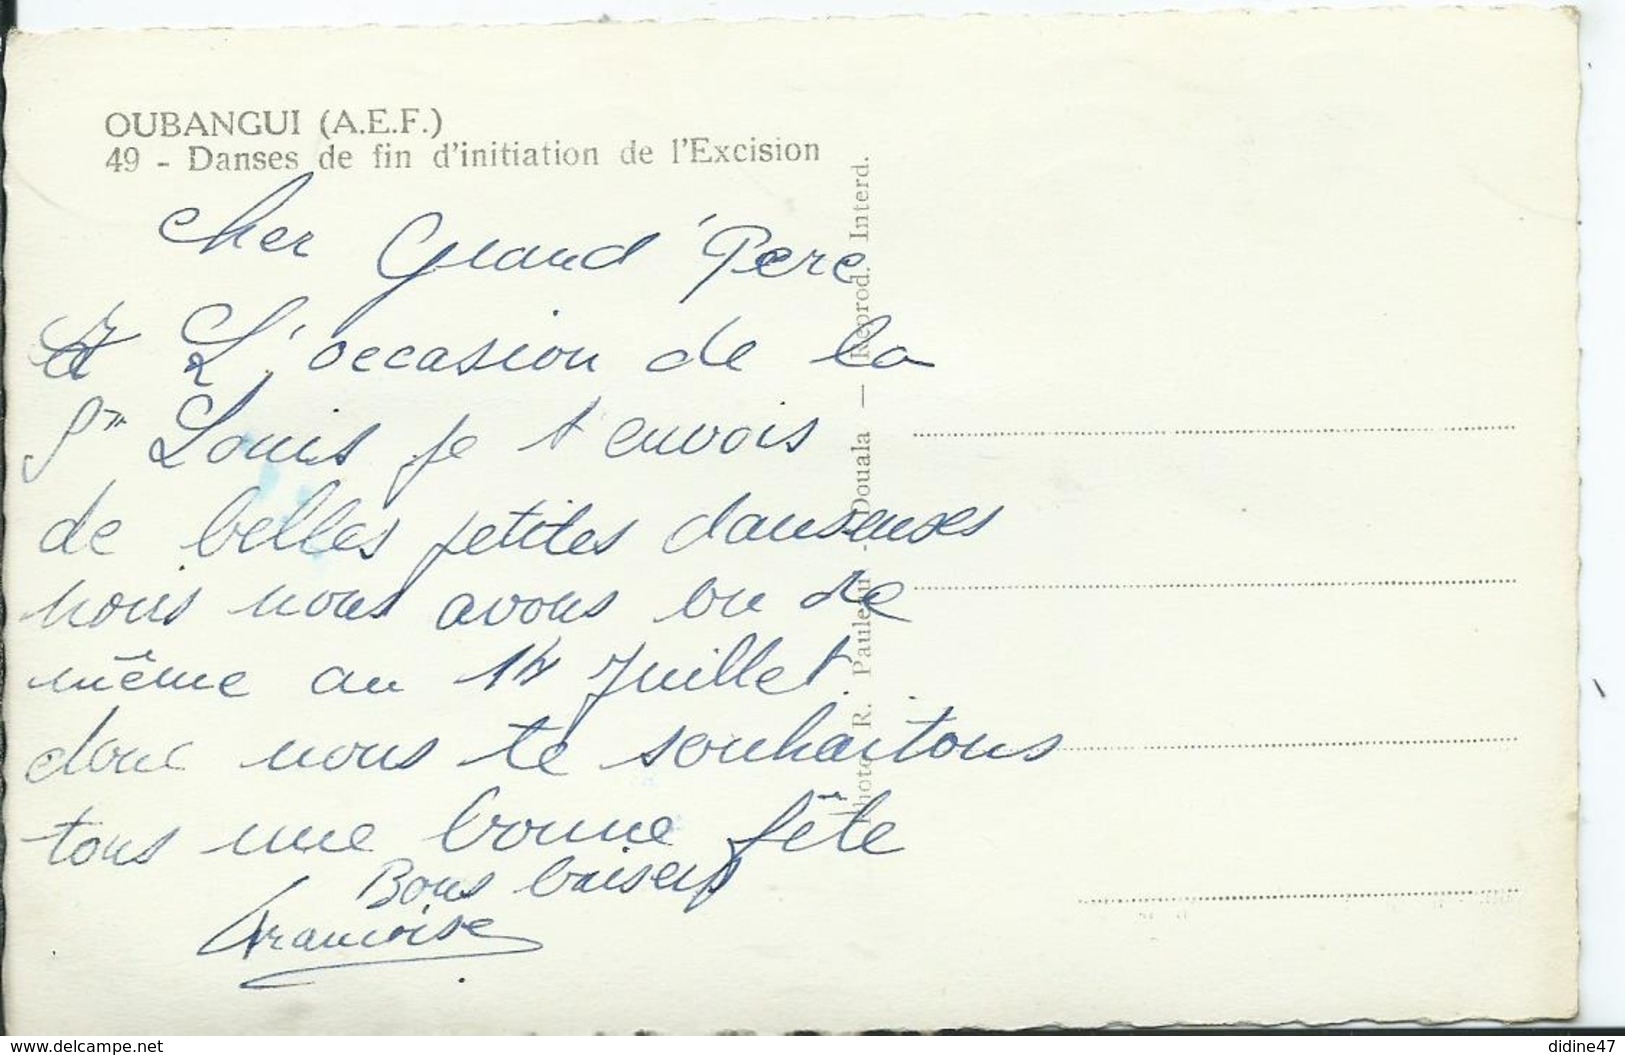 OUBANGUI (A.E.F.)
49 - Danses de fin d'initiation de l'Excision
Cher Grand'Pere
A L'occasion de la
St Louis je t'envois
de belles petites danseuses
nous nous avons vu de
même au 14 Juillet.
donc nous te souhaitons
tous une bonne fête
Bons baisers
Francoise
Photo R. Pauleau - Douala — Reprod. Interd.
www.delcampe.net
didine47